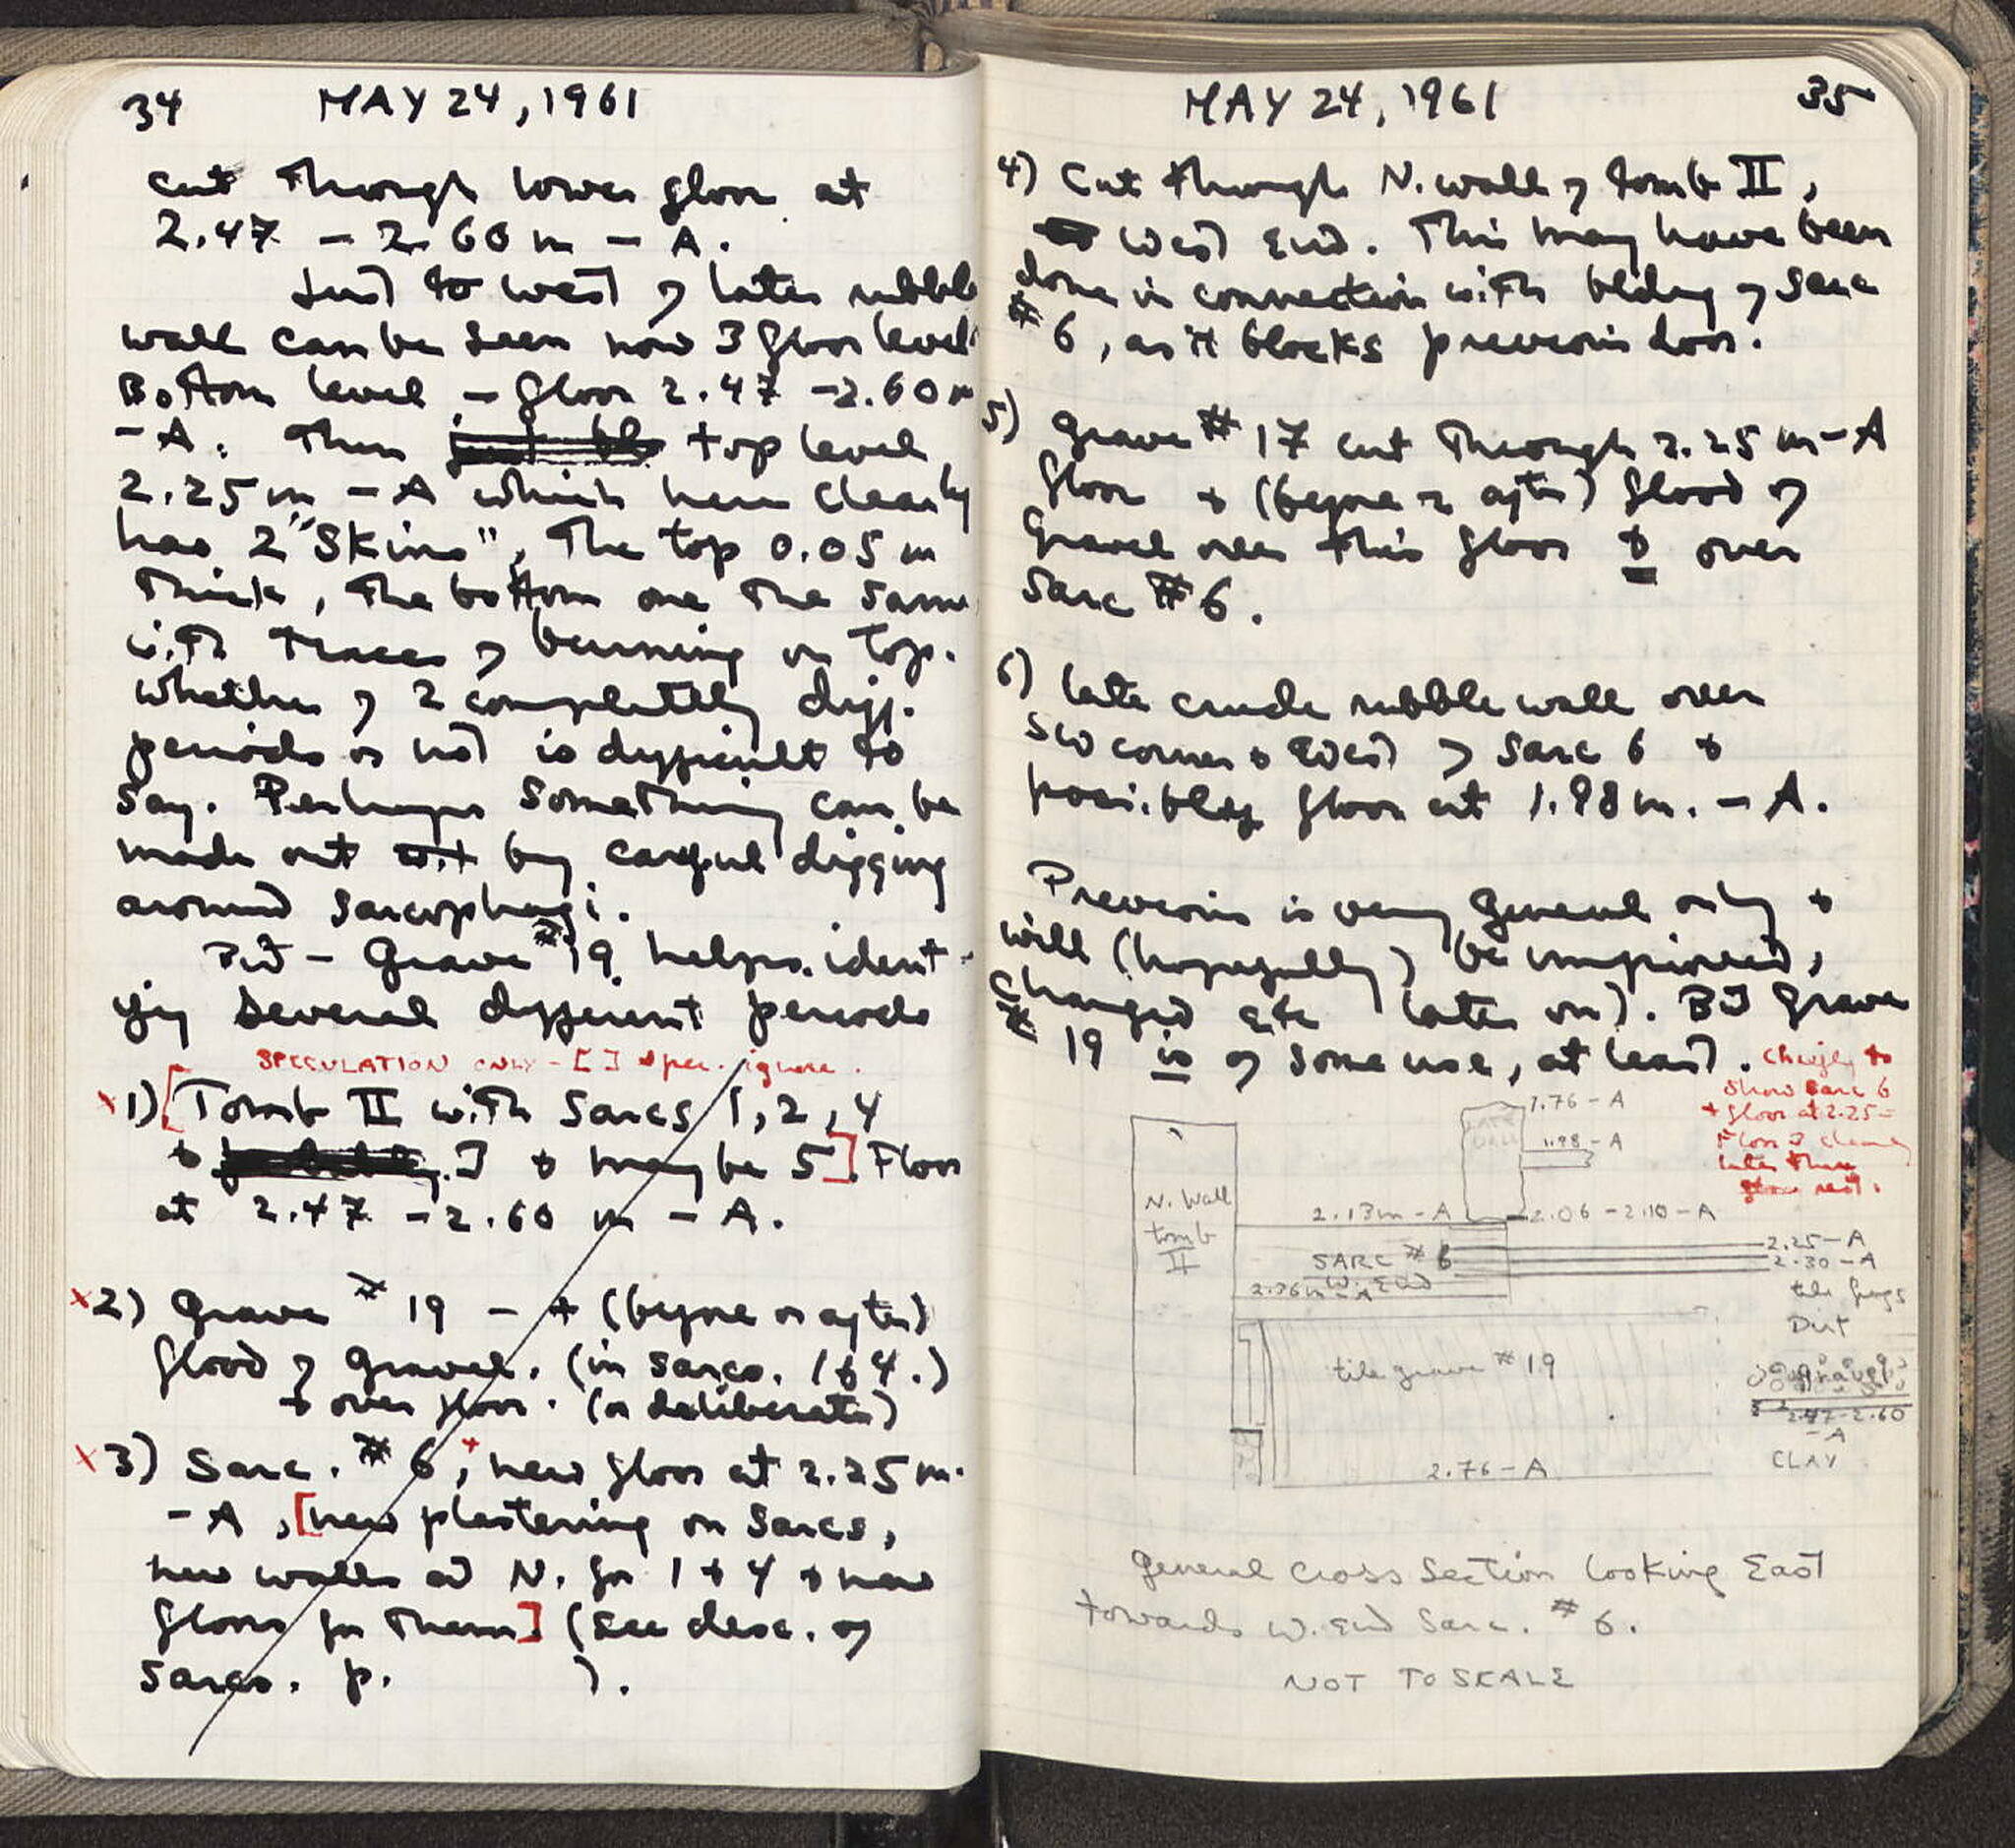 34 MAY 24, 1961
cut through lower floor at
2.47 - 2.60 m - A.
Just to west of later rubble
wall can be seen now 3 floor levels
Bottom level - floor 2.47 - 2.60 m
- A. Then top level
2.25 m - A which here clearly
has 2 "skins", the top 0.05 m
thick, the bottom one the same,
with traces of burning on top.
Whether of 2 completely diff.
periods or not is difficult to
say. Perhaps something can be
made out by careful digging
around sarcophagi.
But - Grave #19 helps ident-
ify several different periods
SPECULATION ONLY - [ ] ignore.
x 1) [Tomb II with Sarcs 1, 2, 4
+ ] + maybe 5] Floor
at 2.47 - 2.60 m - A.
x 2) Grave # 19 - + (before or after)
flood of gravel. (in sarcs. 1 + 4.)
+ over floor. (or deliberate)
x 3) Sarc. # 6, + new floor at 2.25 m.
- A, [new plastering on sarcs,
new walls at N. for 1 + 4 + new
floors for them] (see desc. of
sarcs. p. ).
MAY 24, 1961 35
4) Cut through N. wall of tomb II,
West End. This may have been
done in connection with bldg of Sarc
# 6, as it blocks previous door.
5) Grave # 17 cut through 2.25 m - A
floor + (before or after) flood of
gravel over this floor + over
Sarc # 6.
6) Late crude rubble wall over
SW corner + West of Sarc 6 +
possibly floor at 1.98 m. - A.
Previous is very general only +
will (hopefully) be improved,
changed etc later on). But Grave
# 19 is of some use, at least.
chiefly to
show sarc 6
+ floor at 2.25 -
Floor is clearly
later than
rest.
1.76 - A
LATE
WALL
1.98 - A
N. Wall
tomb
II
2.13m - A
2.06 - 2.10 - A
SARC # 6
W. END
2.25 - A
2.30 - A
2.36m - A
tile frags
Dirt
tile grave # 19
gravel
2.47-2.60
- A
CLAY
2.76 - A
General Cross Section looking East
towards W. End Sarc. # 6.
NOT TO SCALE